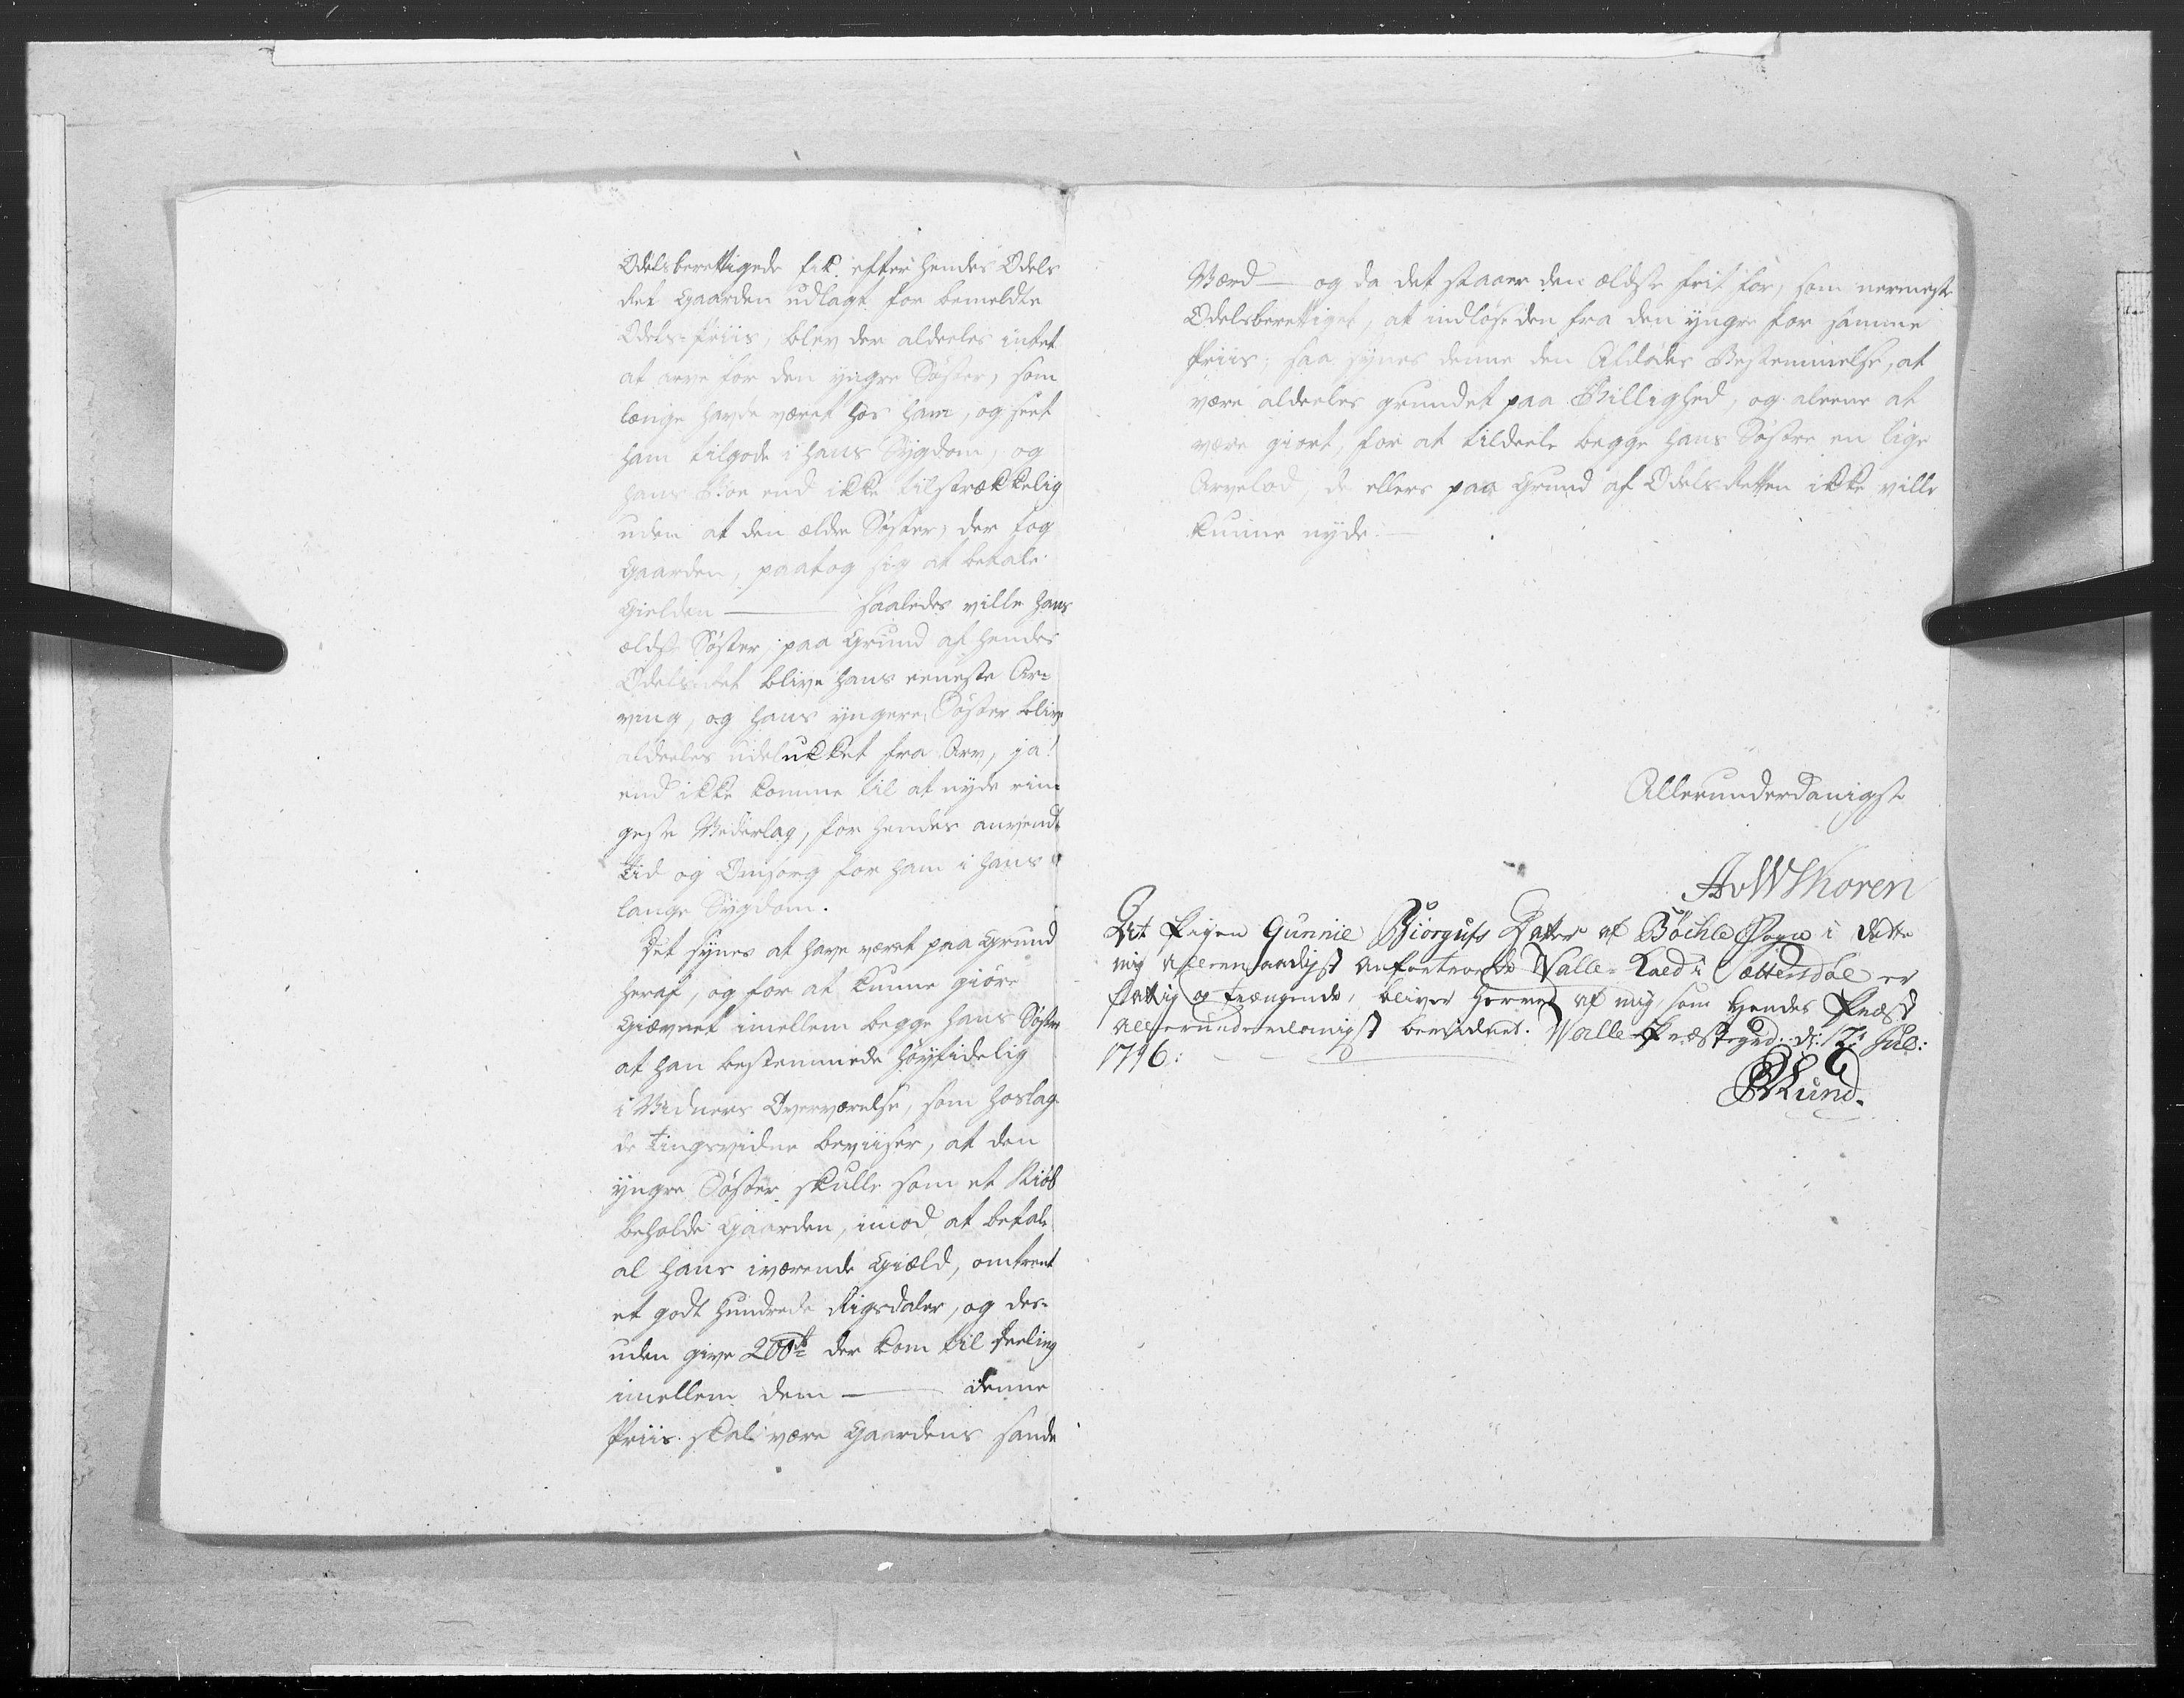 Odelsberettigede fik efter hendes Odels
Ret Gaarden udlagt for bemeldte
Odels-Priis, blev der aldeeles intet
at arve for den yngre Søster, som
længe havde været hos ham, og seet
ham tilgode i hans Sygdom, og
hans Boe end ikke tilstrækkelig
uden at den ældre Søster, der tog
Gaarden, paatog sig at betale
Gielden — saaledes ville hans
ældste Søster paa Grund af hendes
Odelsret blive hans eeneste Ar-
ving, og hans yngere Søster blive
aldeeles udelukket fra Arv, ja!
end ikke komme til at nyde rin-
geste Vederlag, for hendes anvendt
Tid og Omsorg for ham i hans
lange Sygdom.
Det synes at have været paa Grund
heraf, og for at kunne giøre
Giævnet imellem begge hans Søstre
at han bestemmede høytidelig
i Vidners Overværelse, som hoslag-
de Tingsvidne beviiser, at den
yngre Søster skulle som et Kiøb
beholde Gaarden, imod at betale
al hans iværende Giæld, omtrent
et godt hundrede Rigsdaler, og des-
uden give 200 rd der kom til Deeling
imellem dem — denne
Priis skal være Gaardens sande
Værd — og da det staaer den ældste frit for, som nermeste
Odelsberettiget, at indløse den fra den yngre for samme
Priis; saa synes denne den Afdødes Bestemmelse, at
være aldeeles grundet paa Billighed, og aleene at
være giort, for at tildeele begge hans Søstre en lige
Arvelod, de ellers paa Grund af Odelsretten ikke ville
kunne nyde. —
Allerunderdanigst
AvWKoren
At Pigen Gunnie Biørgufs Datter af Bøchle Sogn i dette
mig allernaadigst anfortroede Valle-Kald i Sættersdal er
fattig og trængende, bliver herved af mig, som hendes Præst
allerunderdanigst bevidnet. Valle Præstegrd: d: 12 Jul:
1796:
Lund.